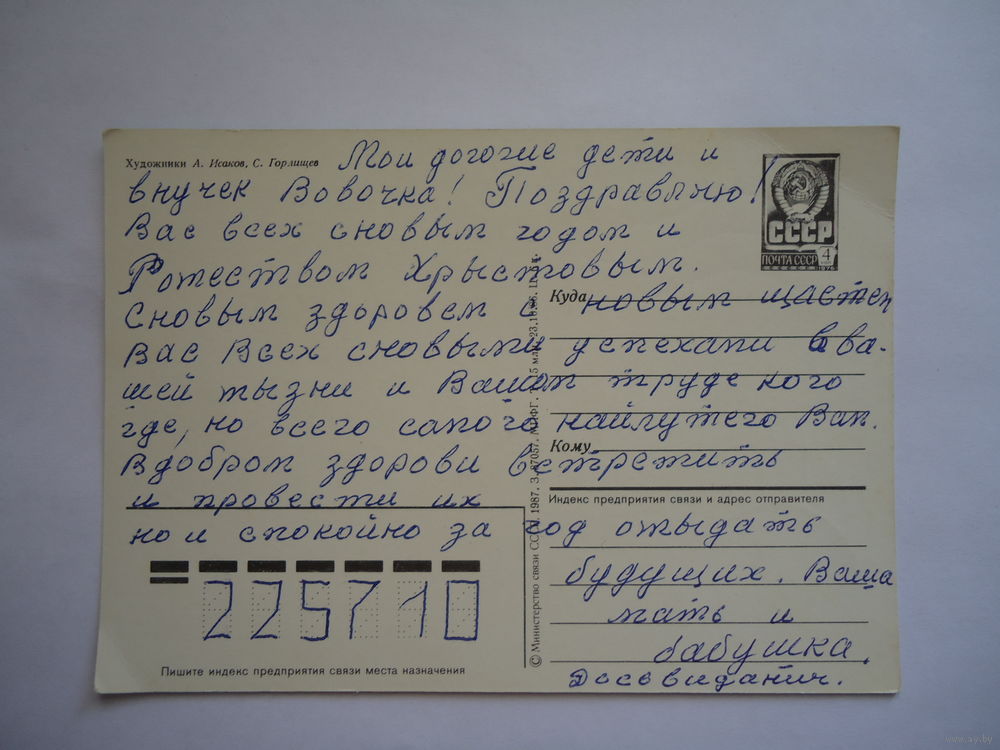 Художники А. Исаков, С. Горлищев
Мои догогие дети и
внучек Вовочка! Поздравляю!
Вас всех сновым годом и
Рожеством Хрыстовым.
Сновым здоровем с новым щастем
Вас Всех сновыми успехами в ва-
шей жызни и Вашом труде ного
где, но всего самого найлутего Вам.
Вдобром здорови встретить
и провести их
но и спокойно за год отыдать
будущих. Ваша
мать и
бабушка.
Досвидания.
СССР
ПОЧТА СССР 4
Куда
Кому
Индекс предприятия связи и адрес отправителя
225710
Пишите индекс предприятия связи места назначения
© Министерство связи СССР. 1987.
www.ay.by